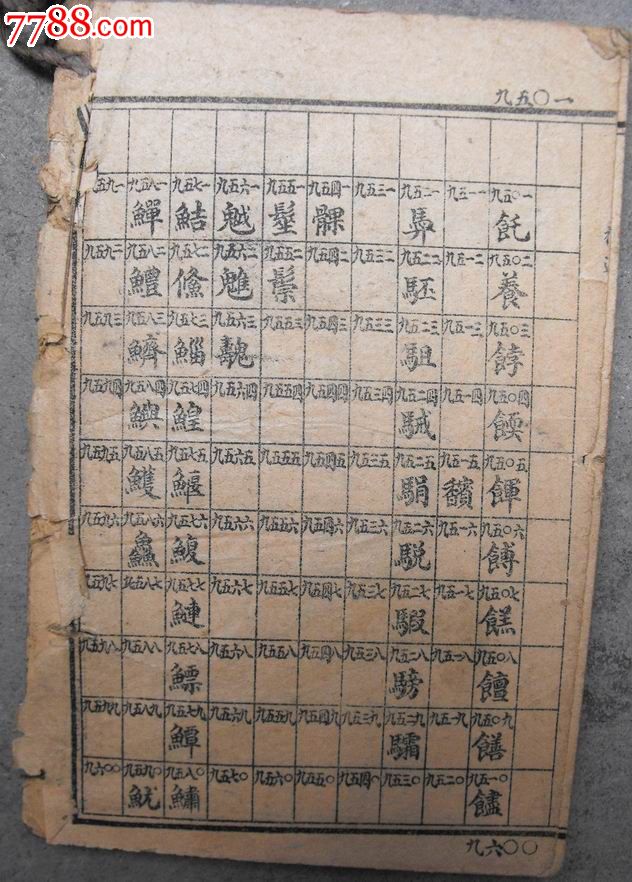 7788.com
中国收藏热线
九五〇一
九五〇一 飥 九五〇二 養 九五〇三 餑 九五〇四 餪 九五〇五 餫 九五〇六 餺 九五〇七 餻 九五〇八 饘 九五〇九 饍 九五一〇
九五一一 九五一二 九五一三 九五一四 九五一五 馪 九五一六 九五一七 九五一八 九五一九 九五二〇
九五二一 九五二二 駓 九五二三 駔 九五二四 駥 九五二五 駽 九五二六 駾 九五二七 騢 九五二八 騯 九五二九 九五三〇
九五三一 九五三二 九五三三 九五三四 九五三五 九五三六 九五三七 九五三八 九五三九 九五四〇
九五四一 髁 九五四二 九五四三 九五四四 九五四五 九五四六 九五四七 九五四八 九五四九 九五五〇
九五五一 髽 九五五二 九五五三 九五五四 九五五五 九五五六 九五五七 九五五八 九五五九 九五六〇
九五六一 魆 九五六二 魋 九五六三 九五六四 九五六五 九五六六 九五六七 九五六八 九五六九 九五七〇
九五七一 鮚 九五七二 鯈 九五七三 鯔 九五七四 鰉 九五七五 鰋 九五七六 鰒 九五七七 鰱 九五七八 鰾 九五七九 鱏 九五八〇 鱐
九五八一 鱓 九五八二 鱧 九五八三 鱭 九五八四 鱮 九五八五 鱯 九五八六 鱻 九五八七 九五八八 九五八九 九五九〇 魷
九五九一 九五九二 九五九三 九五九四 九五九五 九五九六 九五九七 九五九八 九五九九 九六〇〇
九六〇〇